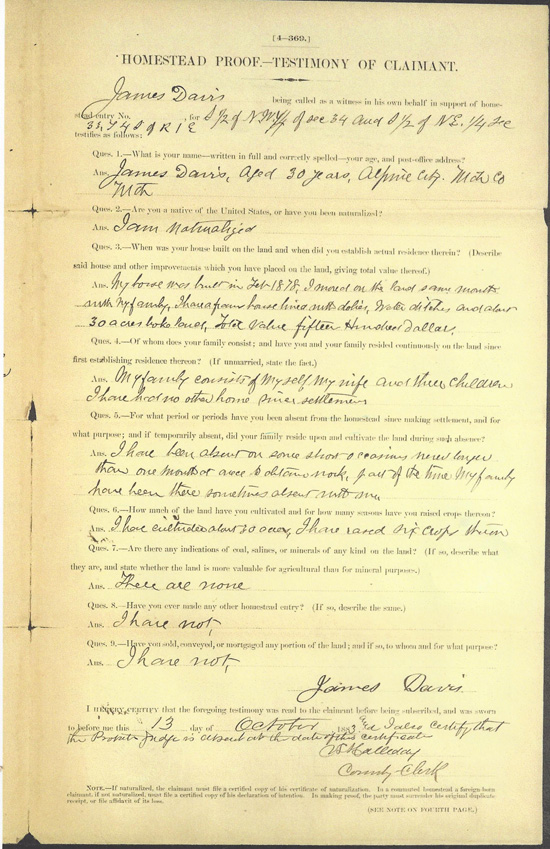 (4–369.)
HOMESTEAD PROOF.—TESTIMONY OF CLAIMANT.
James Davis being called as a witness in his own behalf in support of home-
stead entry No. , for S 1/2 of N.W 1/4 of sec 34 and S 1/2 of N E. 1/4 Sec
T 4 S of R 1 E
testifies as follows:
Ques. 1.—What is your name—written in full and correctly spelled—your age, and post-office address?
Ans. James Davis, Aged 30 years, Alpine City. Utah Co
Utah
Ques. 2.—Are you a native of the United States, or have you been naturalized?
Ans. I am Naturalized
Ques. 3.—When was your house built on the land and when did you establish actual residence therein? (Describe
said house and other improvements which you have placed on the land, giving total value thereof.)
Ans. My house was built in Feb 1878, I moved on the land same month
with my family, I have a frame house lined with dobies, Water ditches and about
30 acres broke land, Total Value fifteen Hundred Dollars,
Ques. 4.—Of whom does your family consist; and have you and your family resided continuously on the land since
first establishing residence thereon? (If unmarried, state the fact.)
Ans. My family consists of Myself, My wife and three children
I have had no other home since settlement
Ques. 5.—For what period or periods have you been absent from the homestead since making settlement, and for
what purpose; and if temporarily absent, did your family reside upon and cultivate the land during such absence?
Ans. I have been absent on some short occasions never longer
than one month at once to obtain work, part of the time My family
have been there sometimes absent with me
Ques. 6.—How much of the land have you cultivated and for how many seasons have you raised crops thereon?
Ans. I have cultivated about 30 acres, I have raised six crops thereon
Ques. 7.—Are there any indications of coal, salines, or minerals of any kind on the land? (If so, describe what
they are, and state whether the land is more valuable for agricultural than for mineral purposes.)
Ans. There are none
Ques. 8.—Have you ever made any other homestead entry? (If so, describe the same.)
Ans. I have not,
Ques. 9.—Have you sold, conveyed, or mortgaged any portion of the land; and if so, to whom and for what purpose?
Ans. I have not,
James Davis
I HEREBY CERTIFY that the foregoing testimony was read to the claimant before being subscribed, and was sworn
to before me this 13 day of October 1883 and I also certify that
the Probate Judge is absent at the date of this certificate
Halliday
County Clerk
NOTE.—If naturalized, the claimant must file a certified copy of his certificate of naturalization. In a commuted homestead a foreign-born
claimant, if not naturalized, must file a certified copy of his declaration of intention. In making proof, the party must surrender his original duplicate
receipt, or file affidavit of its loss.
(SEE NOTE ON FOURTH PAGE.)